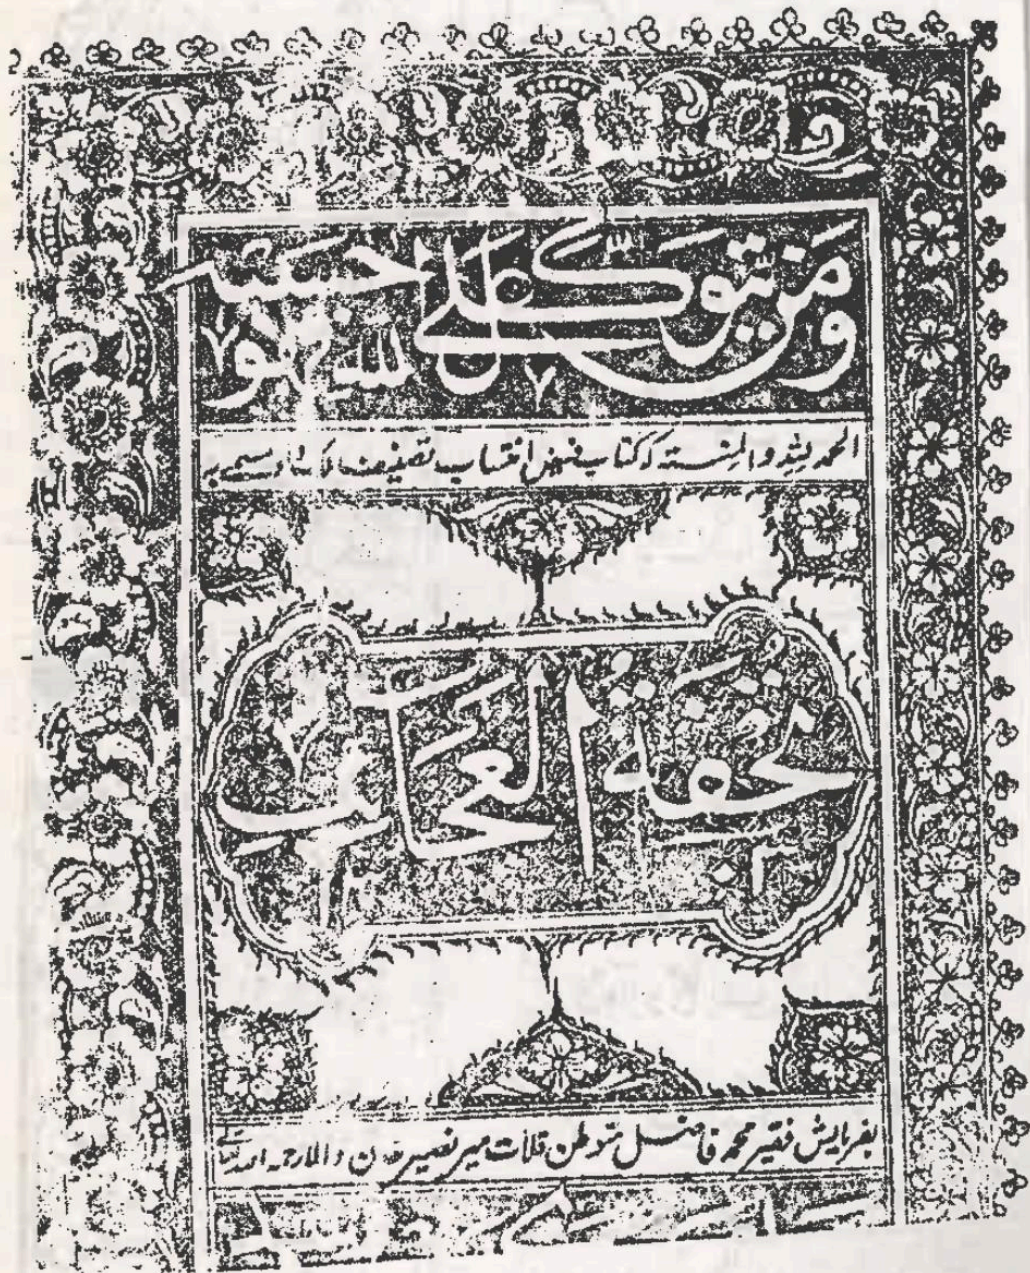 ومن يتوكل على الله فهو حسبه
الحمد لله والمنته که کتاب فیض انتساب تصنیف سمے بہ
تحفة العجائب
بفرمایش فقیر محمد فاضل متوطن قلات میر نصیر خان